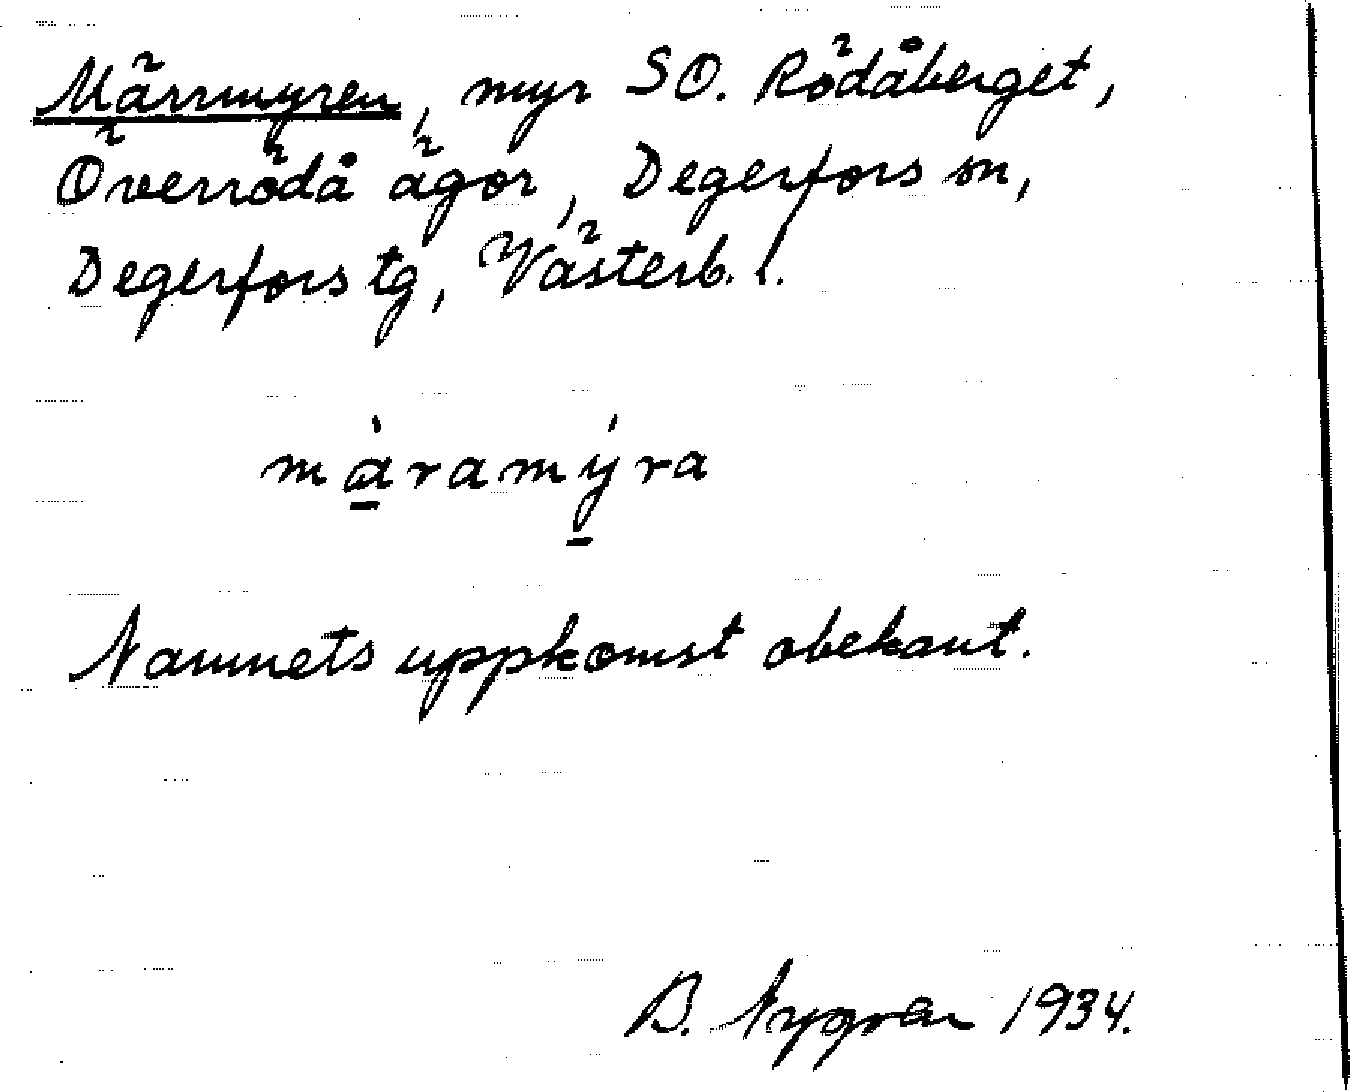 Märrmyren, myr SO. Rödåberget,
Överrödå ägor, Degerfors sn,
Degerfors tg, Västerb. l.
màramýra
Namnets uppkomst obekant.
B. Nygren 1934.